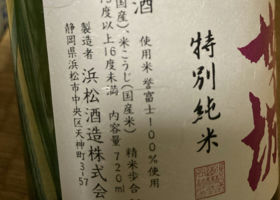 特別純米
酒
使用米 誉富士100%使用
国産)、米こうじ(国産米) 精米歩合
15度以上16度未満 内容量 720ml
製造者 浜松酒造株式会
静岡県浜松市中央区天神町3-57